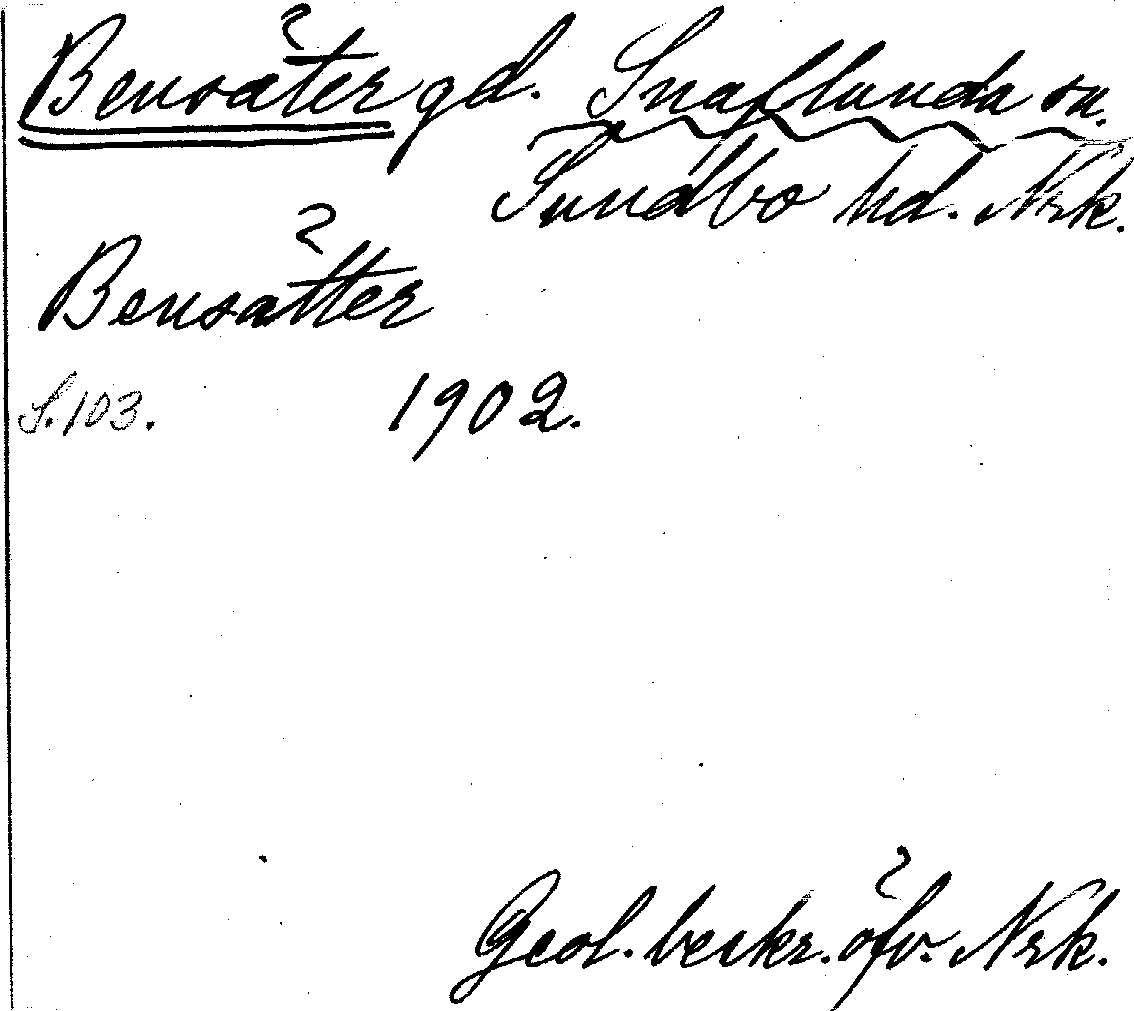 Bensäter gd. Snaflunda sn.
Sundbo hd. Nrk.
Bensätter
S. 103. 1902.
Geol. beskr. öfv. Nrk.